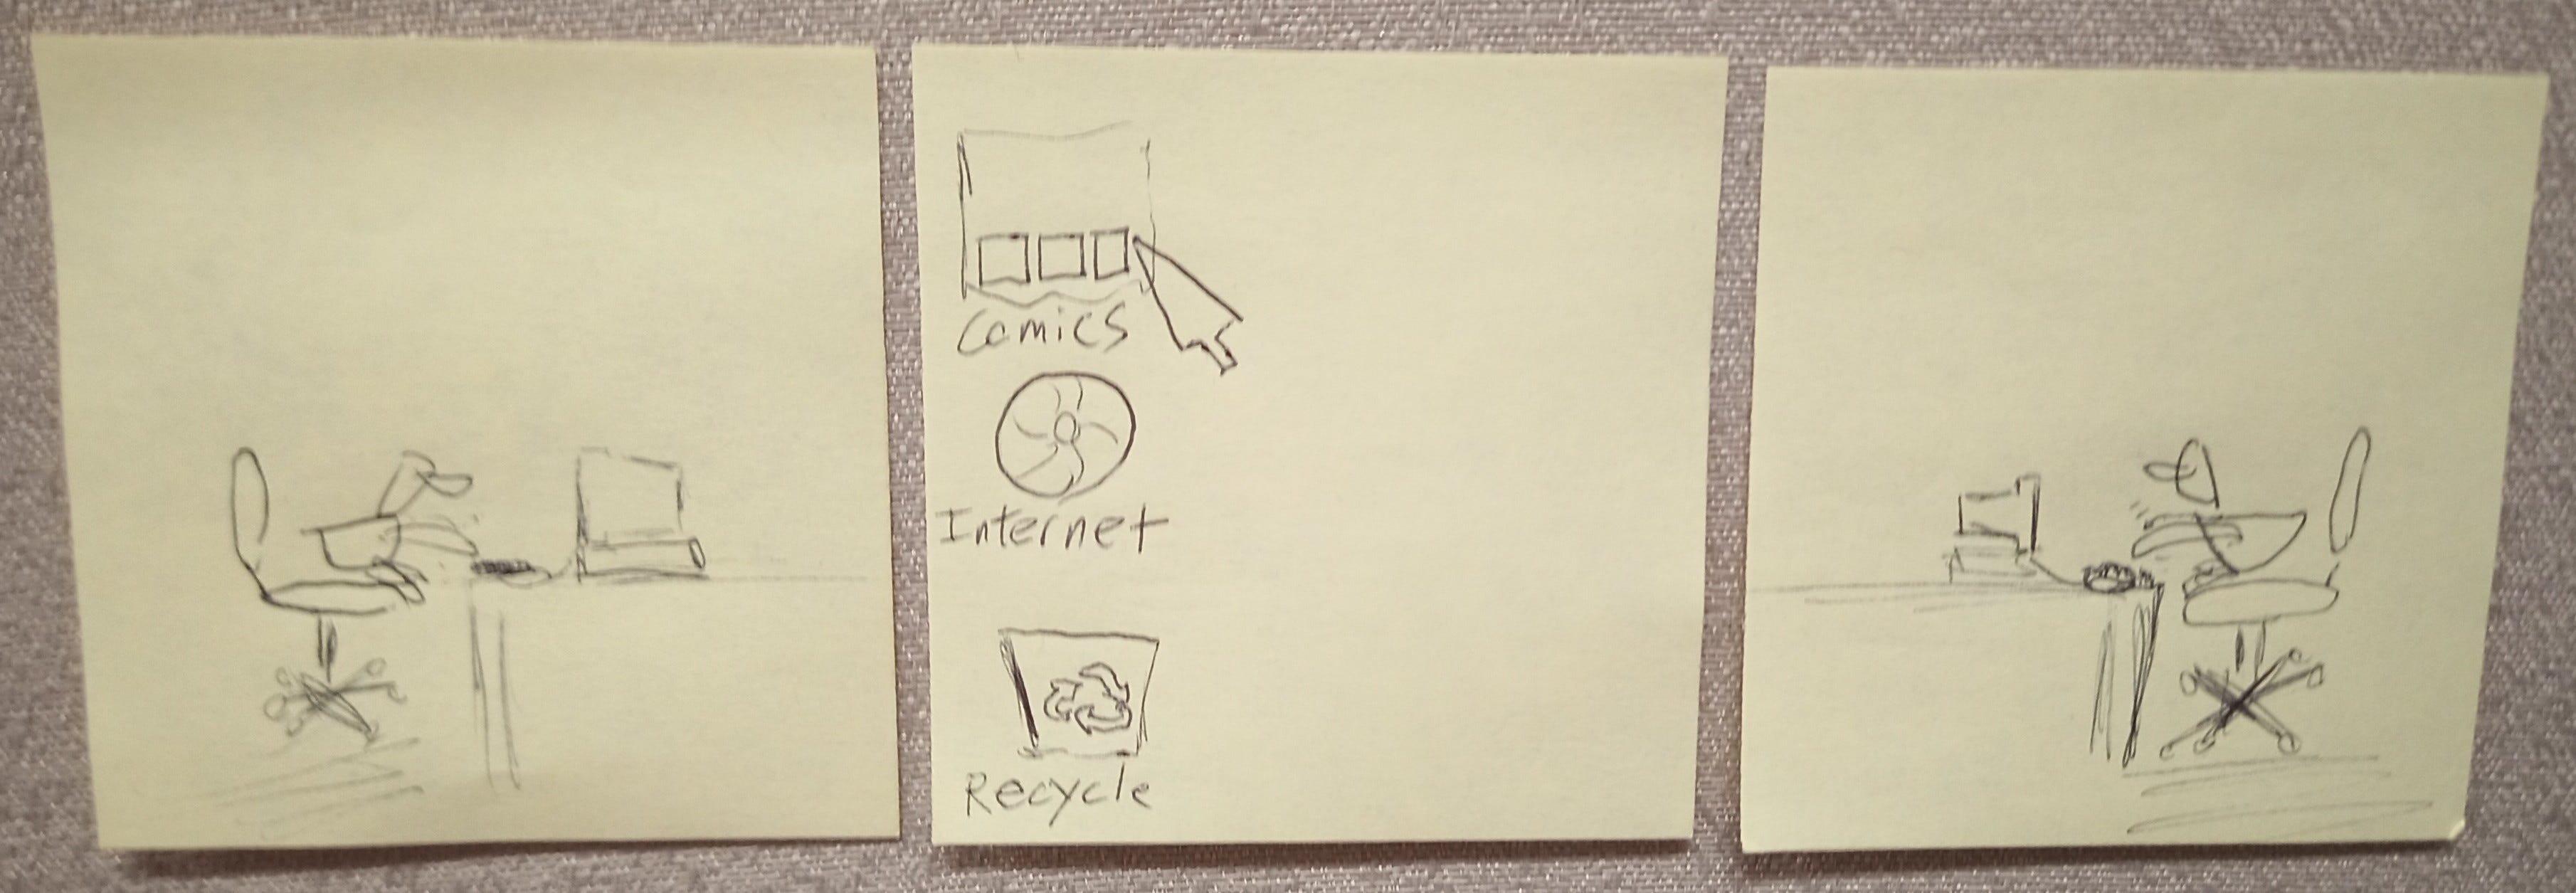 Comics
Internet
Recycle